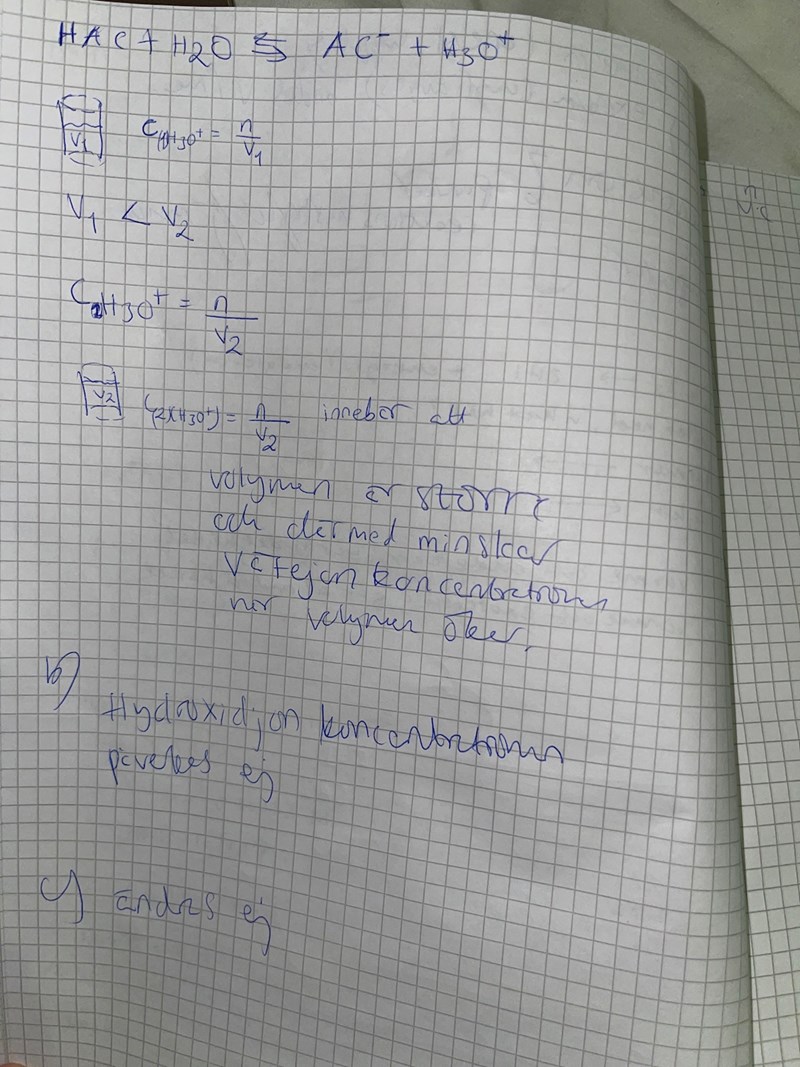 HAC + H2O ⇆ AC⁻ + H3O⁺
V1 C(1)H3O⁺ = n/V1
V1 < V2
C2H3O⁺ = n/V2
V2 C(2)(H3O⁺) = n/V2 innebär att
volymen är större
och därmed minskar
vätejon koncentrationen
när volymen ökar.
b)
Hydroxidjon koncentrationen
påverkas ej
c) ändras ej